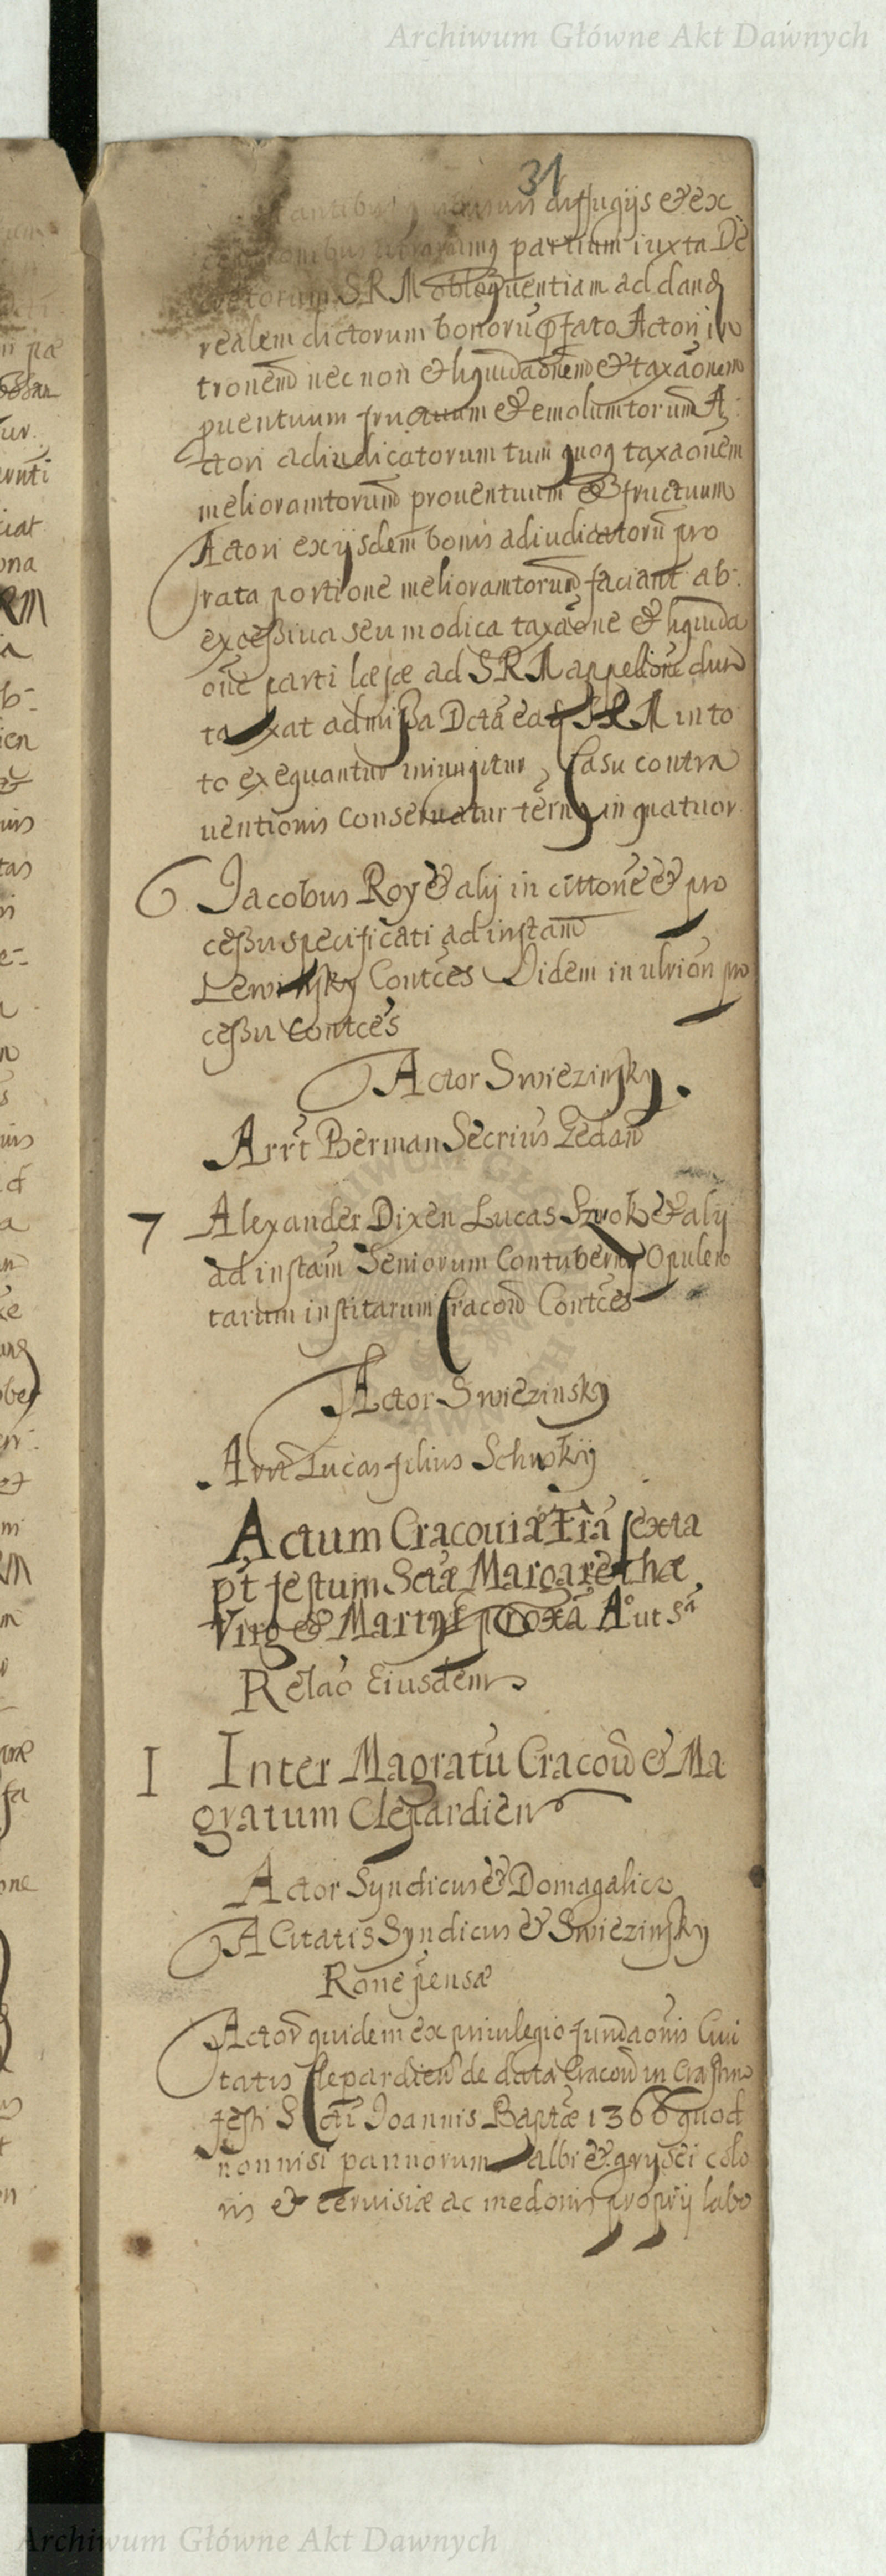 Archiwum Główne Akt Dawnych
31
diffugijs et ex
partium iuxta De
S R M obloquentiam ad dand
realem dictorum bonorū pfato Actori in
tronem nec non et liquidaōnem et taxaōnem
puentuum fructuum et emolumtorum A
ctori adiudicatorum tum quoq taxaōnem
melioramtorum prouentuum et fructuum
Actori ex ijsdem bonis adiudicatorū pro
rata portione melioramtorum faciant ab
exceßiua seu modica taxaōne et liquida
oūe parti læsæ ad S R M appellōne dun
taxat admißa Dctā eaq S R M in to
to exequantur iniungitur, Casu contra
uentionis conseruatur tērnq in quatuor
6 Jacobus Roy et alij in cittōne et pro
ceßu specificati ad instam
Lewinsky Contces Ibidem in ulriōn pro
ceßu Contces
Actor Swiezinsky.
Arrt Berman Secrius Zedaū
7 Alexander Dixen Lucas Szwok et alij
ad instam Seniorum Contubernij Opulen
tarum institarum Cracow Contces
Actor Swiezinsky
Arrt Lucas filius Schwskij
Actum Cracouiæ Fra sexta
pt festum Sctæ Margarethæ
Virg et Martyr proxā Ao ut sa
Relaō Eiusdem
I Inter Magratū Cracow et Ma
gratum Clepardien
Actor Syndicus et Domagalicz
A Citatis Syndicus et Swiezinsky
Rone pensæ
Actor quidem ex priuilegio fundaōnis Ciui
tatis Clepardien de data Cracow in Crastino
festi Scti Joannis Baptæ 1366 quod
non nisi pannorum albi et grysei colo
ris et ceruisiæ ac medonis proprij labo
Archiwum Główne Akt Dawnych